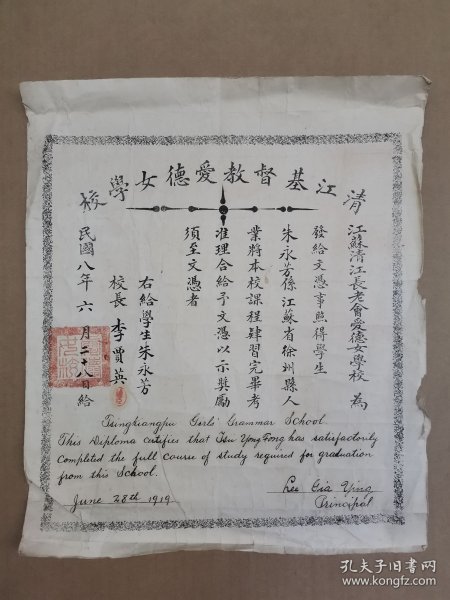 清江基督教愛德女學校
江蘇清江長老會愛德女學校 為
發給文憑事照得學生
朱永芳係江蘇省徐州縣人
業將本校課程肄習完畢考
准理合給予文憑以示獎勵
須至文憑者
右給學生朱永芳
校長 李賈英
民國八年六月二十八日給
Tsingkiangpu Girls' Grammar School.
This Diploma certifies that Tsu Yong Fong has satisfactorily
completed the full course of study required for graduation
from this School.
June 28th 1919
Lee Gia Ying
Principal
孔夫子旧书网
www.kongfz.com